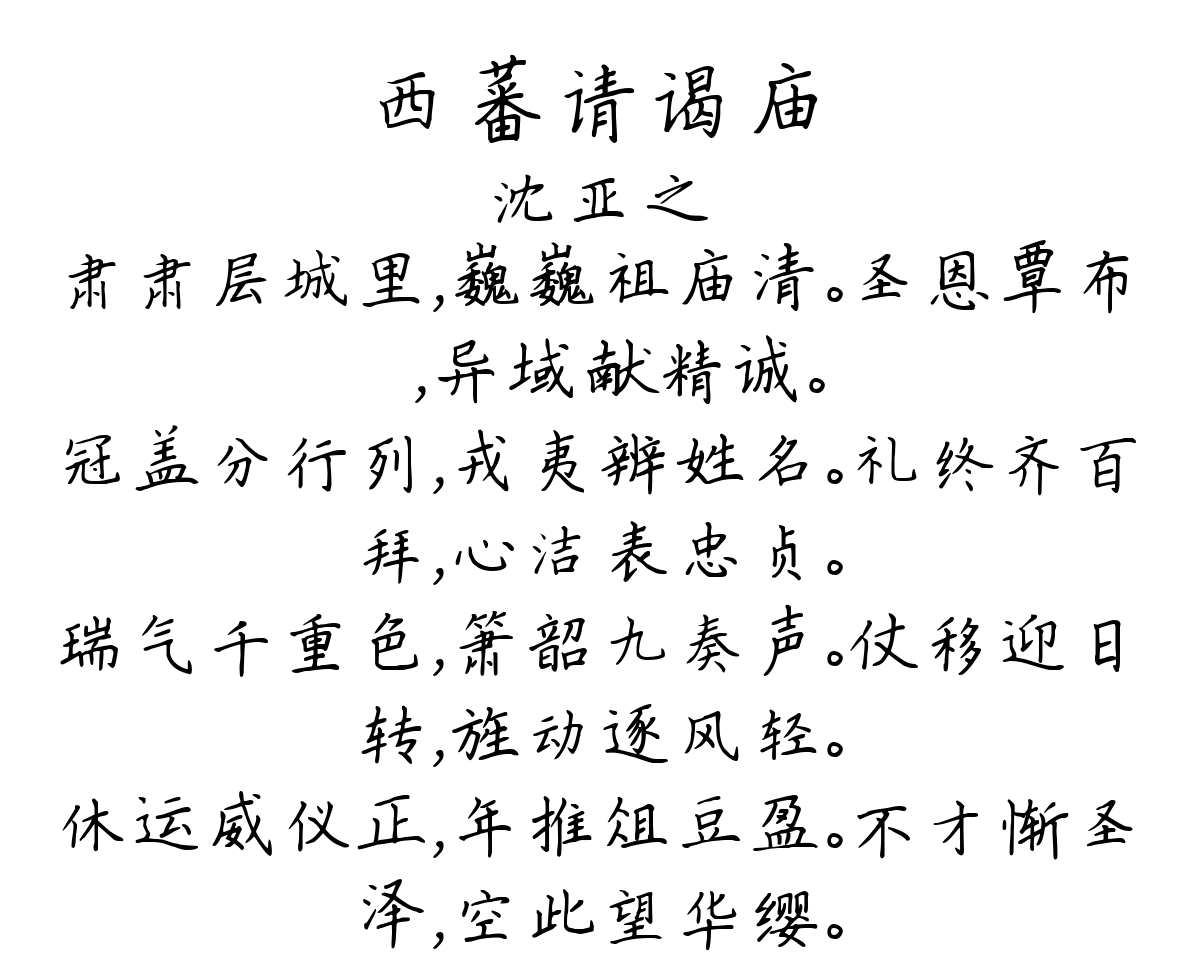 西蕃请谒庙
沈亚之
肃肃层城里,巍巍祖庙清。圣恩覃布
,异域献精诚。
冠盖分行列,戎夷辨姓名。礼终齐百
拜,心洁表忠贞。
瑞气千重色,箫韶九奏声。仗移迎日
转,旌动逐风轻。
休运威仪正,年推俎豆盈。不才惭圣
泽,空此望华缨。